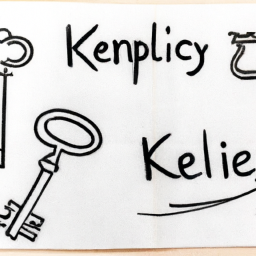 Kenplicy
Kelie,